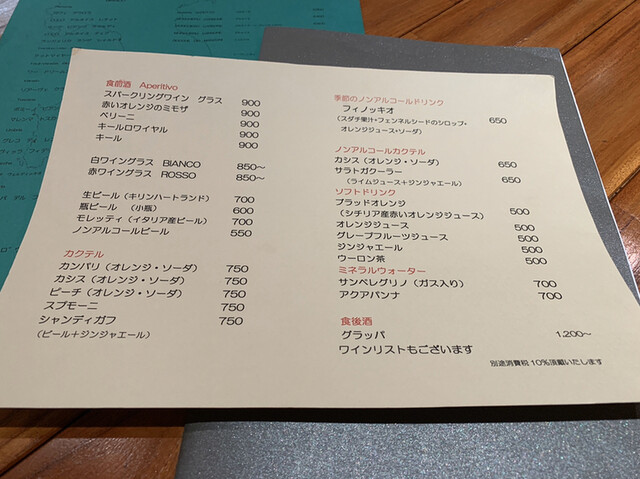 食前酒 Aperitivo
スパークリングワイン グラス 900
赤いオレンジのミモザ 900
ベリーニ 900
キールロワイヤル 900
キール 900
白ワイングラス BIANCO 850～
赤ワイングラス ROSSO 850～
生ビール（キリンハートランド） 700
瓶ビール （小瓶） 600
モレッティ（イタリア産ビール） 700
ノンアルコールビール 550
カクテル
カンパリ（オレンジ・ソーダ） 750
カシス（オレンジ・ソーダ） 750
ピーチ（オレンジ・ソーダ） 750
スプモーニ 750
シャンディガフ 750
（ビール＋ジンジャエール）
季節のノンアルコールドリンク
フィノッキオ 650
（スダチ果汁・フェンネルシードのシロップ・
オレンジジュース・ソーダ）
ノンアルコールカクテル
カシス（オレンジ・ソーダ） 650
サラトガクーラー 650
（ライムジュース＋ジンジャエール）
ソフトドリンク
ブラッドオレンジ
（シチリア産赤いオレンジジュース） 500
オレンジジュース 500
グレープフルーツジュース 500
ジンジャエール 500
ウーロン茶 500
ミネラルウォーター
サンペレグリノ（ガス入り） 700
アクアパンナ 700
食後酒
グラッパ 1,200～
ワインリストもございます
別途消費税 10%頂戴いたします